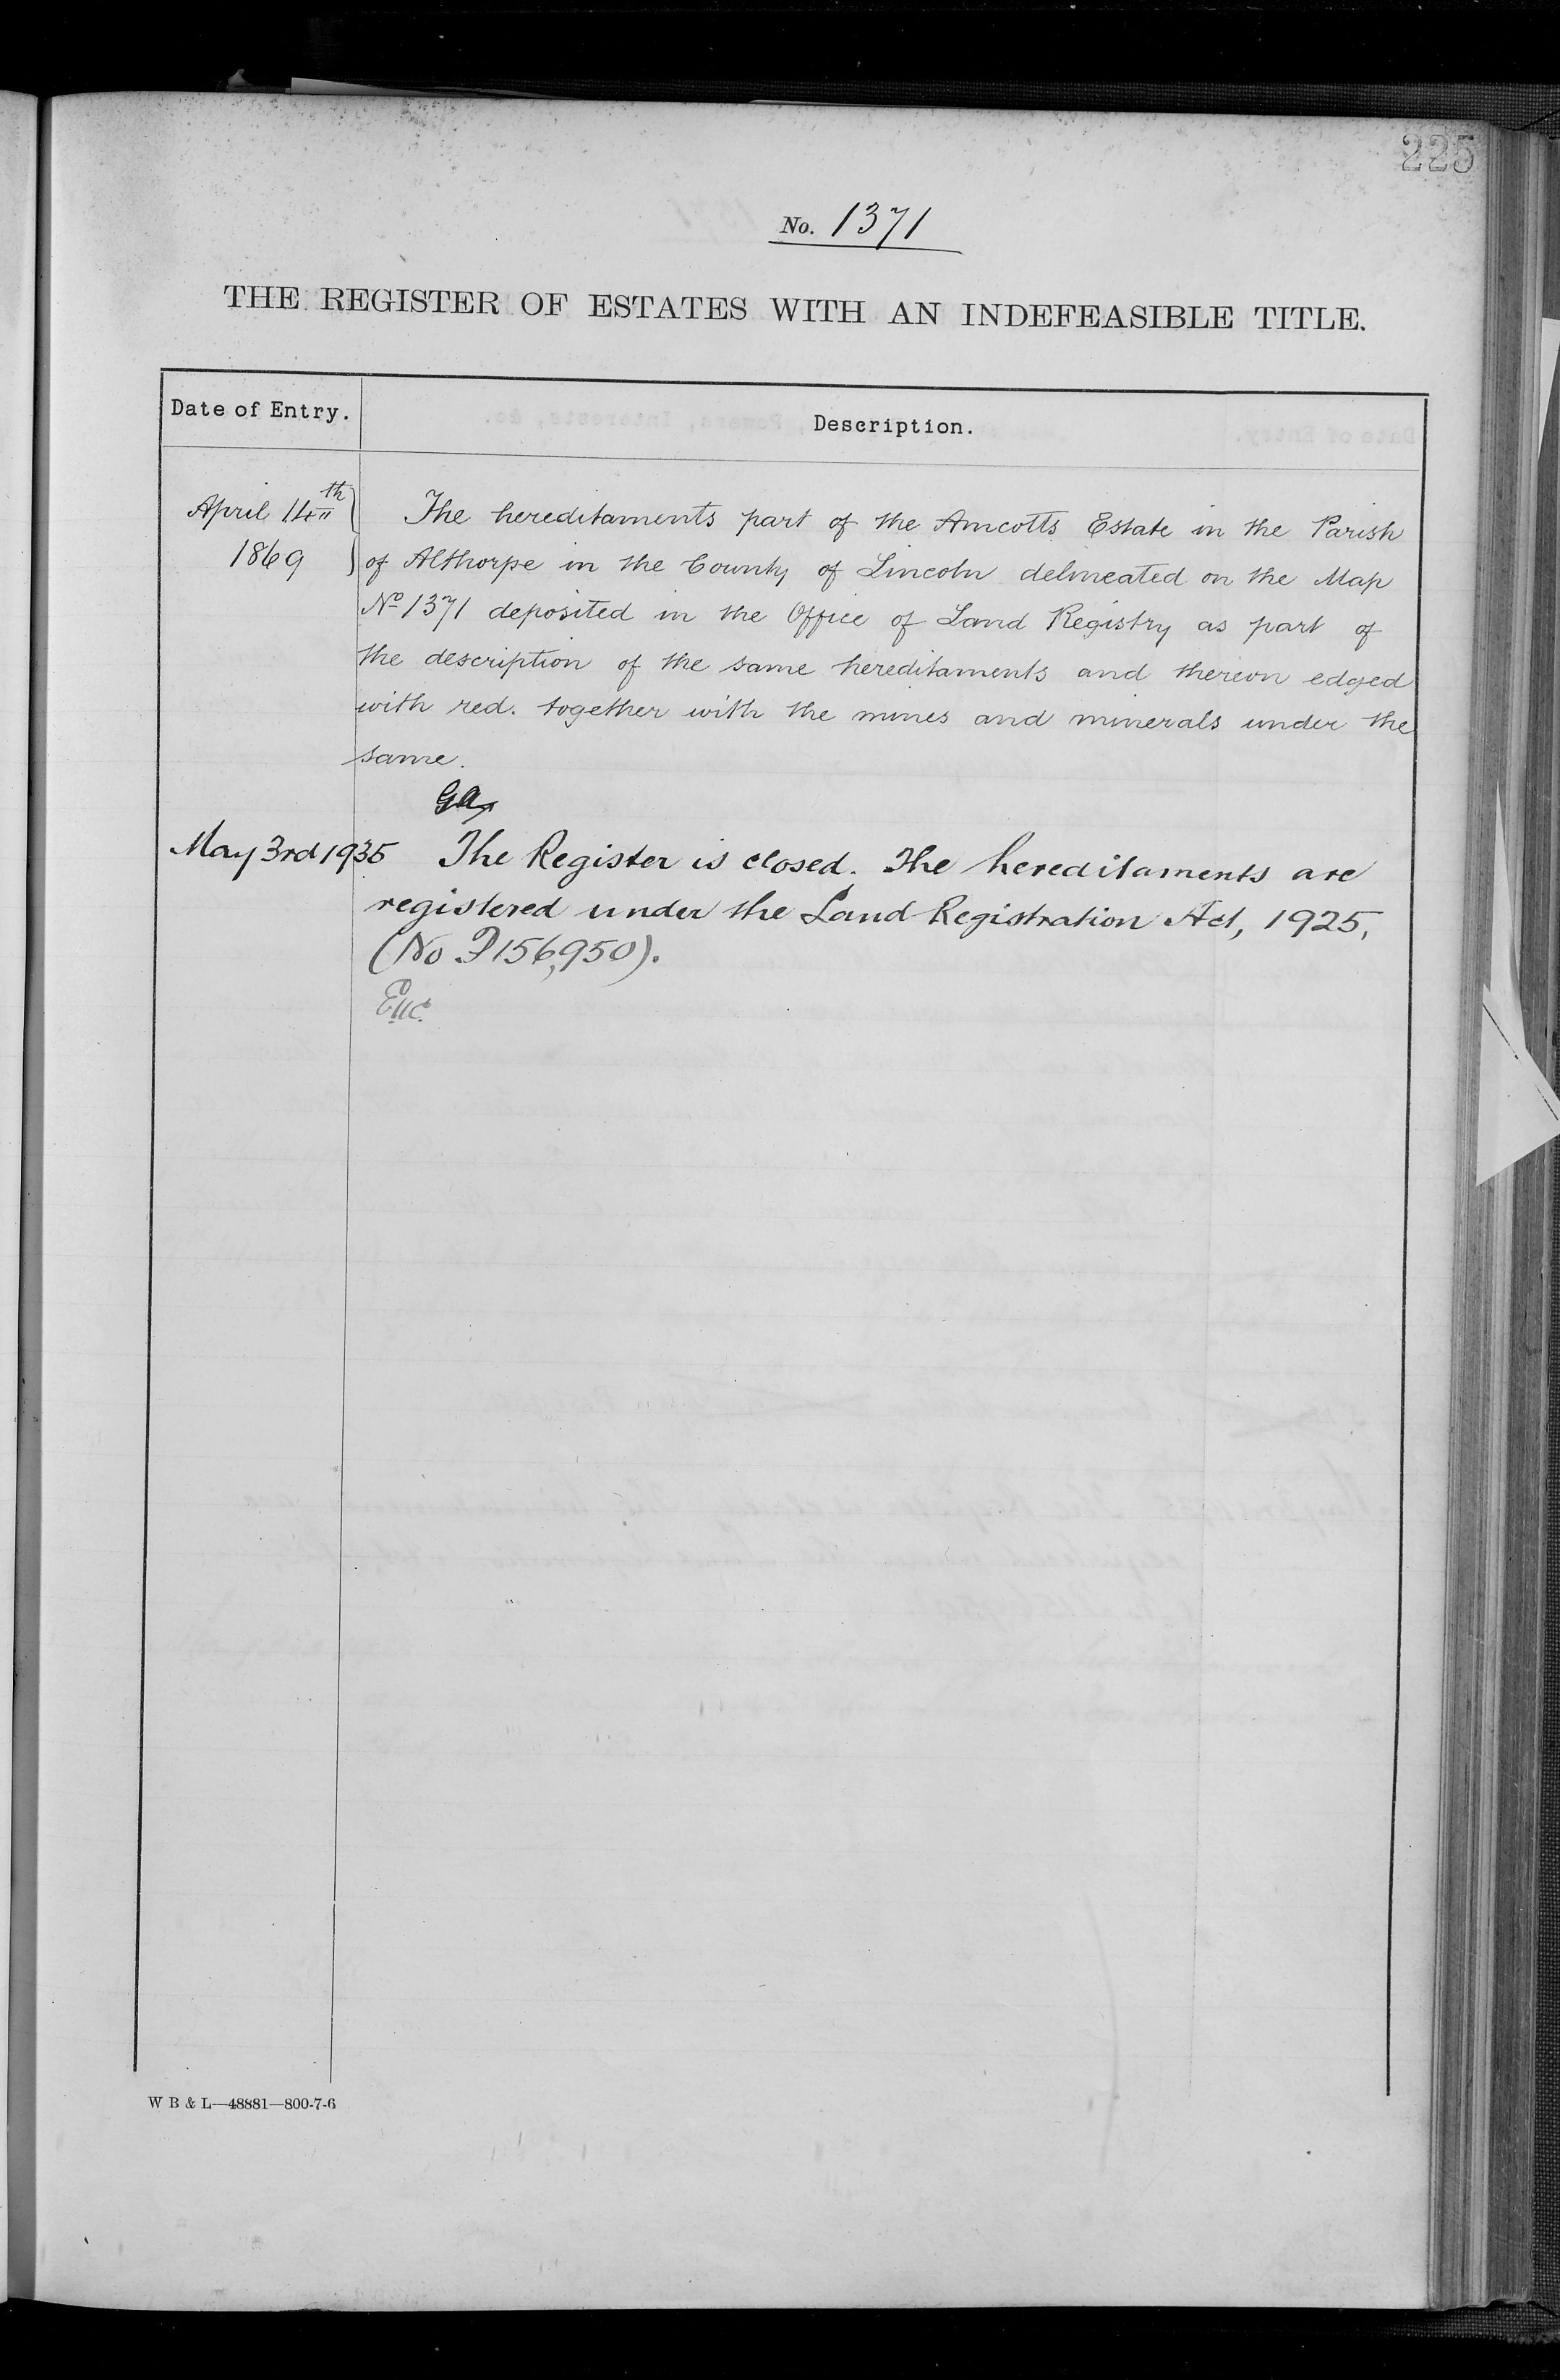 225
No. 1371
THE REGISTER OF ESTATES WITH AN INDEFEASIBLE TITLE.
Date of Entry.
Description.
April 14th
1869
The hereditaments part of the Amcotts Estate in the Parish
of Althorpe in the County of Lincoln delineated on the Map
No 1371 deposited in the Office of Land Registry as part of
the description of the same hereditaments and thereon edged
with red. together with the mines and minerals under the
same.
May 3rd 1935 The Register is closed. The hereditaments are
registered under the Land Registration Act, 1925,
(No P156,950).
W B & L—48881—800-7-6